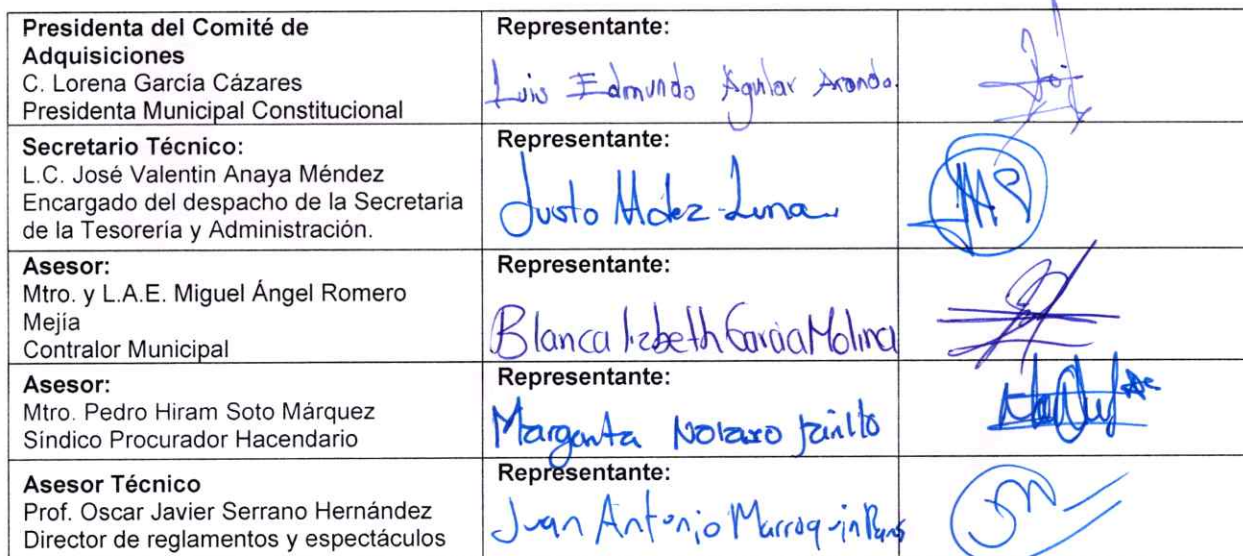 Presidenta del Comité de
Adquisiciones
C. Lorena García Cázares
Presidenta Municipal Constitucional
Representante:
Luis Edmundo Aguilar Aranda.
Secretario Técnico:
L.C. José Valentin Anaya Méndez
Encargado del despacho de la Secretaria
de la Tesorería y Administración.
Representante:
Justo Mdez Luna
Asesor:
Mtro. y L.A.E. Miguel Ángel Romero
Mejía
Contralor Municipal
Representante:
Blanca lizbeth Garcia Molina
Asesor:
Mtro. Pedro Hiram Soto Márquez
Síndico Procurador Hacendario
Representante:
Margarita
Asesor Técnico
Prof. Oscar Javier Serrano Hernández
Director de reglamentos y espectáculos
Representante:
Juan Antonio Marroquin